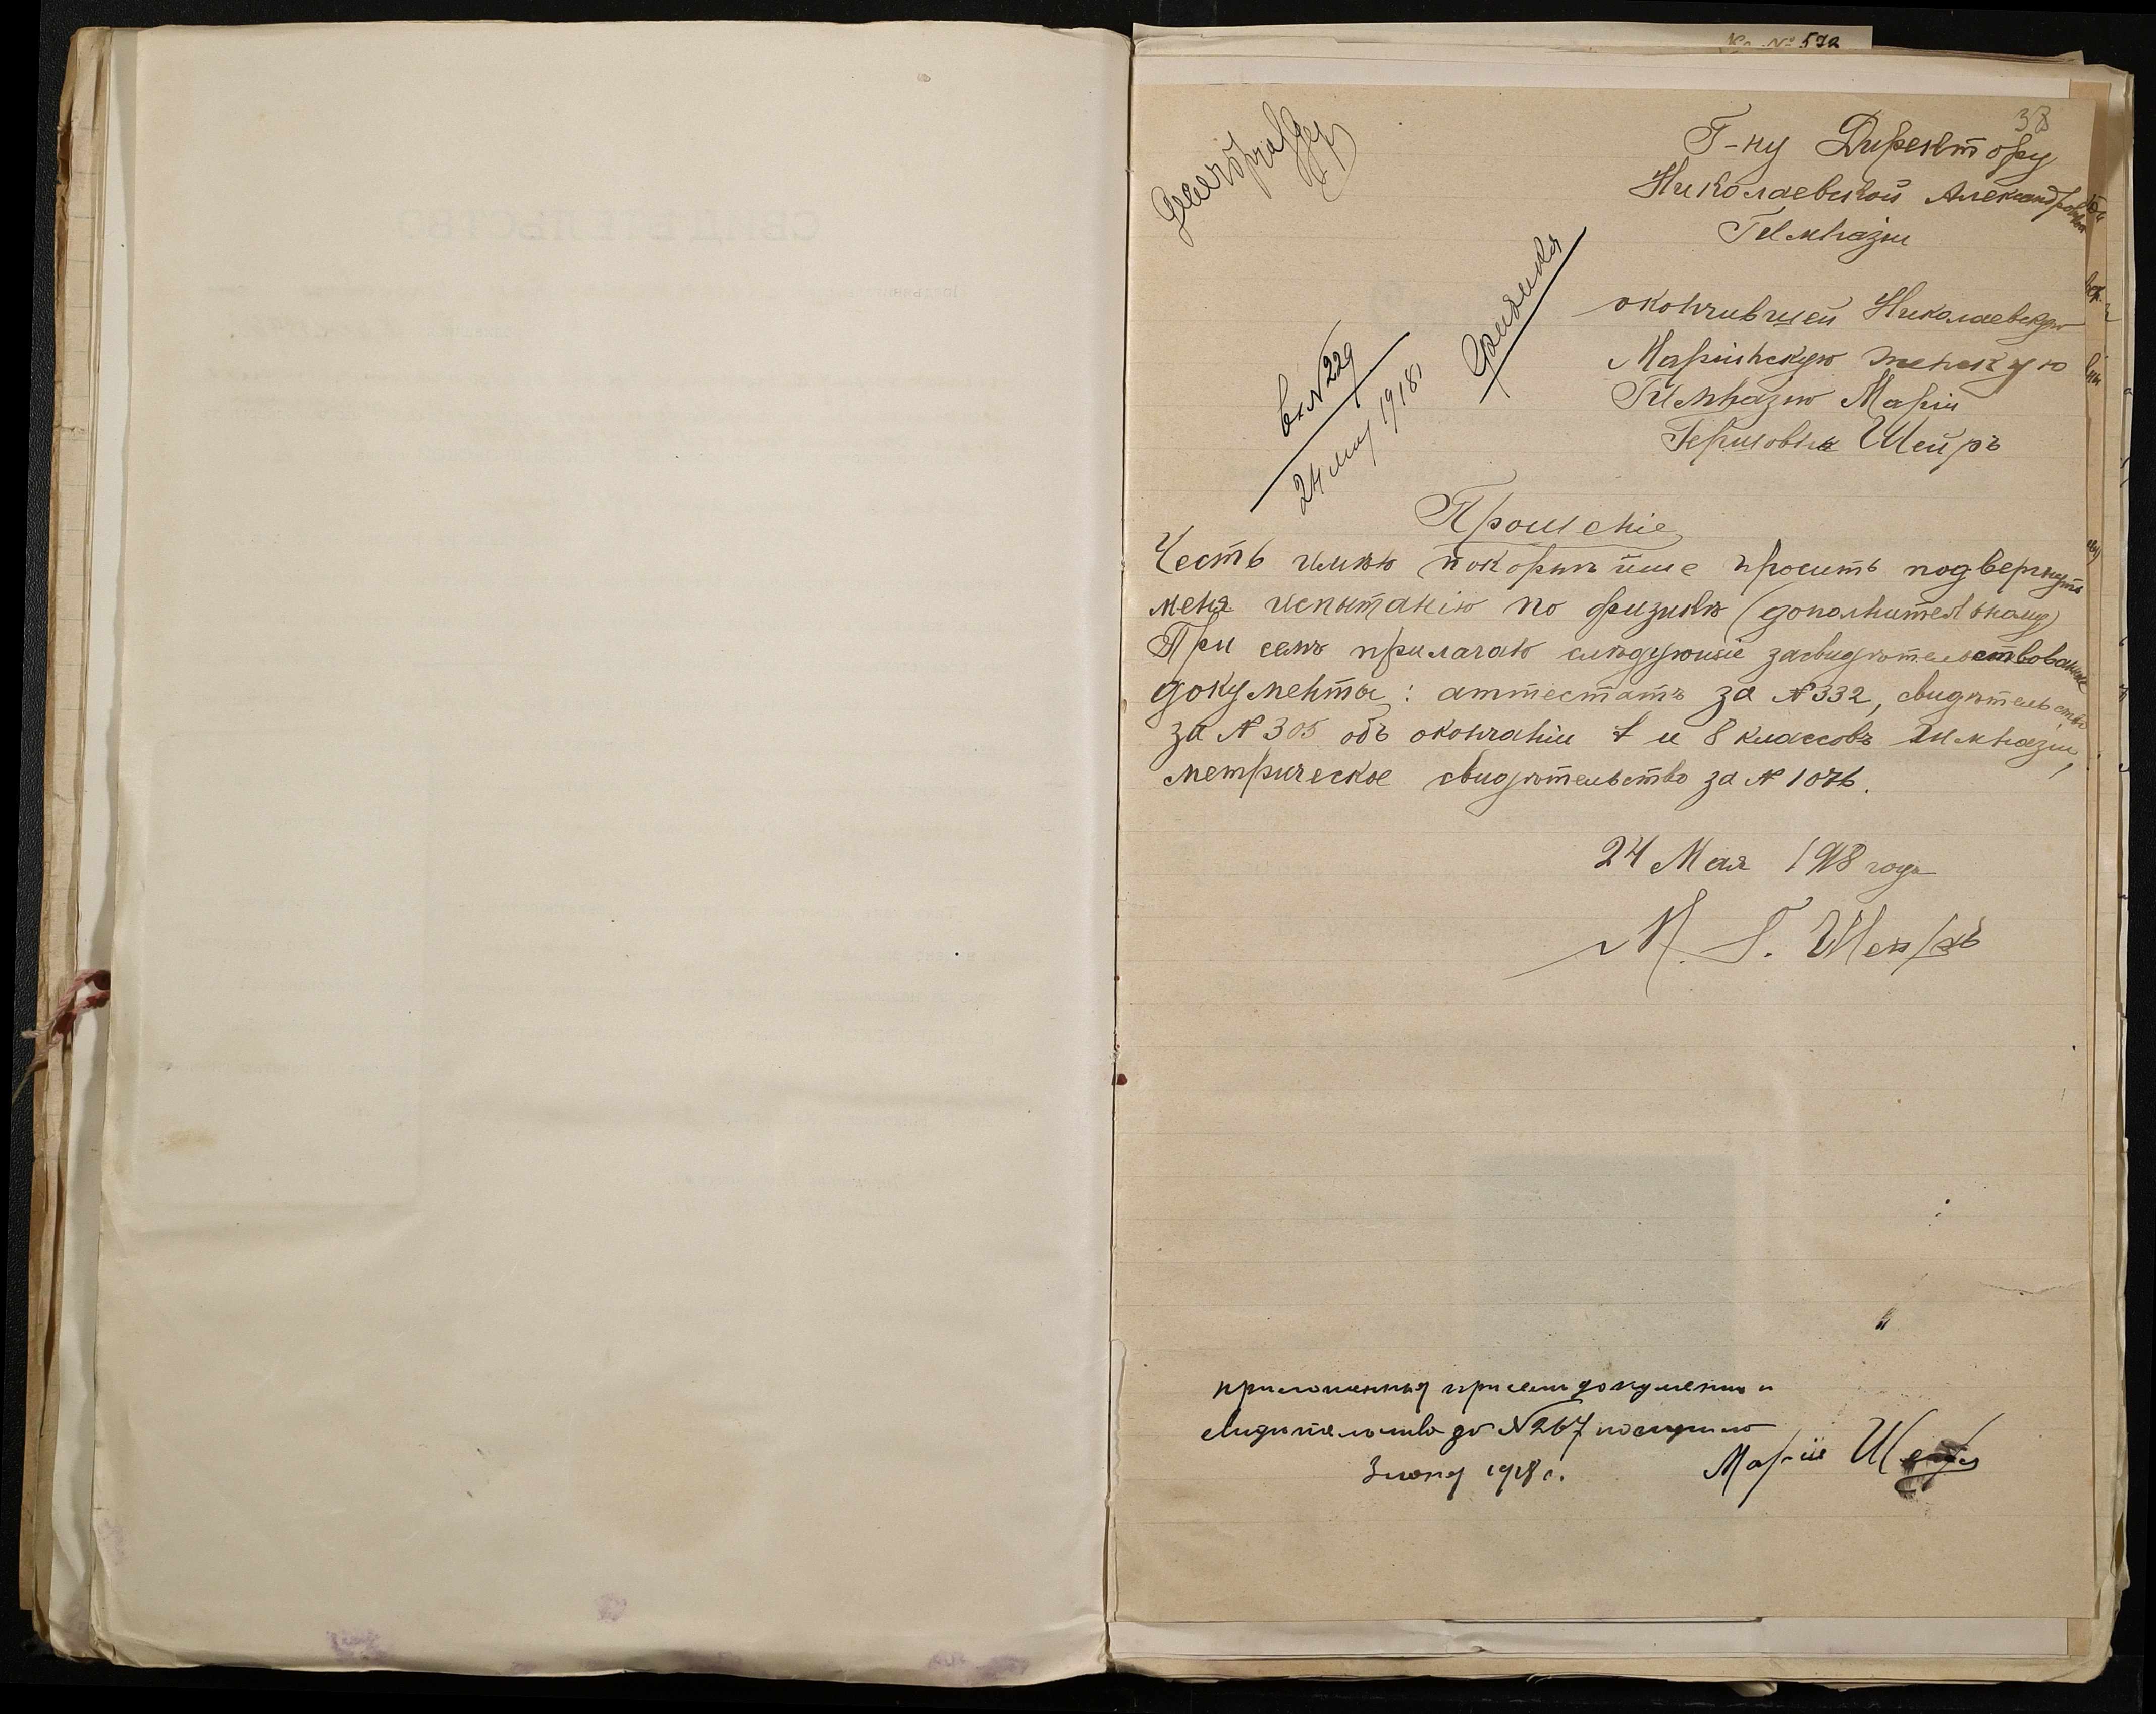 № 592
38
Г-ну Директору
Николаевской Александровской
Гимназіи
окончившей Николаевскую
Маріинскую женскую
Гимназію Маріи
Гершовны Шейръ
вх №229
24 мая 1918
Физика
Прошеніе
Честь имѣю покорнѣйше просить подвергнуть
меня испытанію по физикѣ (дополнительному)
При семъ прилагаю слѣдующіе засвидѣтельствованные
документы: аттестатъ за №332, свидѣтельство
за №305 объ окончаніи 7 и 8 классовъ Гимназіи,
метрическое свидѣтельство за № 1076.
24 Мая 1918 года
М. Г. Шейръ
приложенныя при семъ документы и
свидѣтельство за №267 получила
3 іюня 1918 г. Марія Шейръ